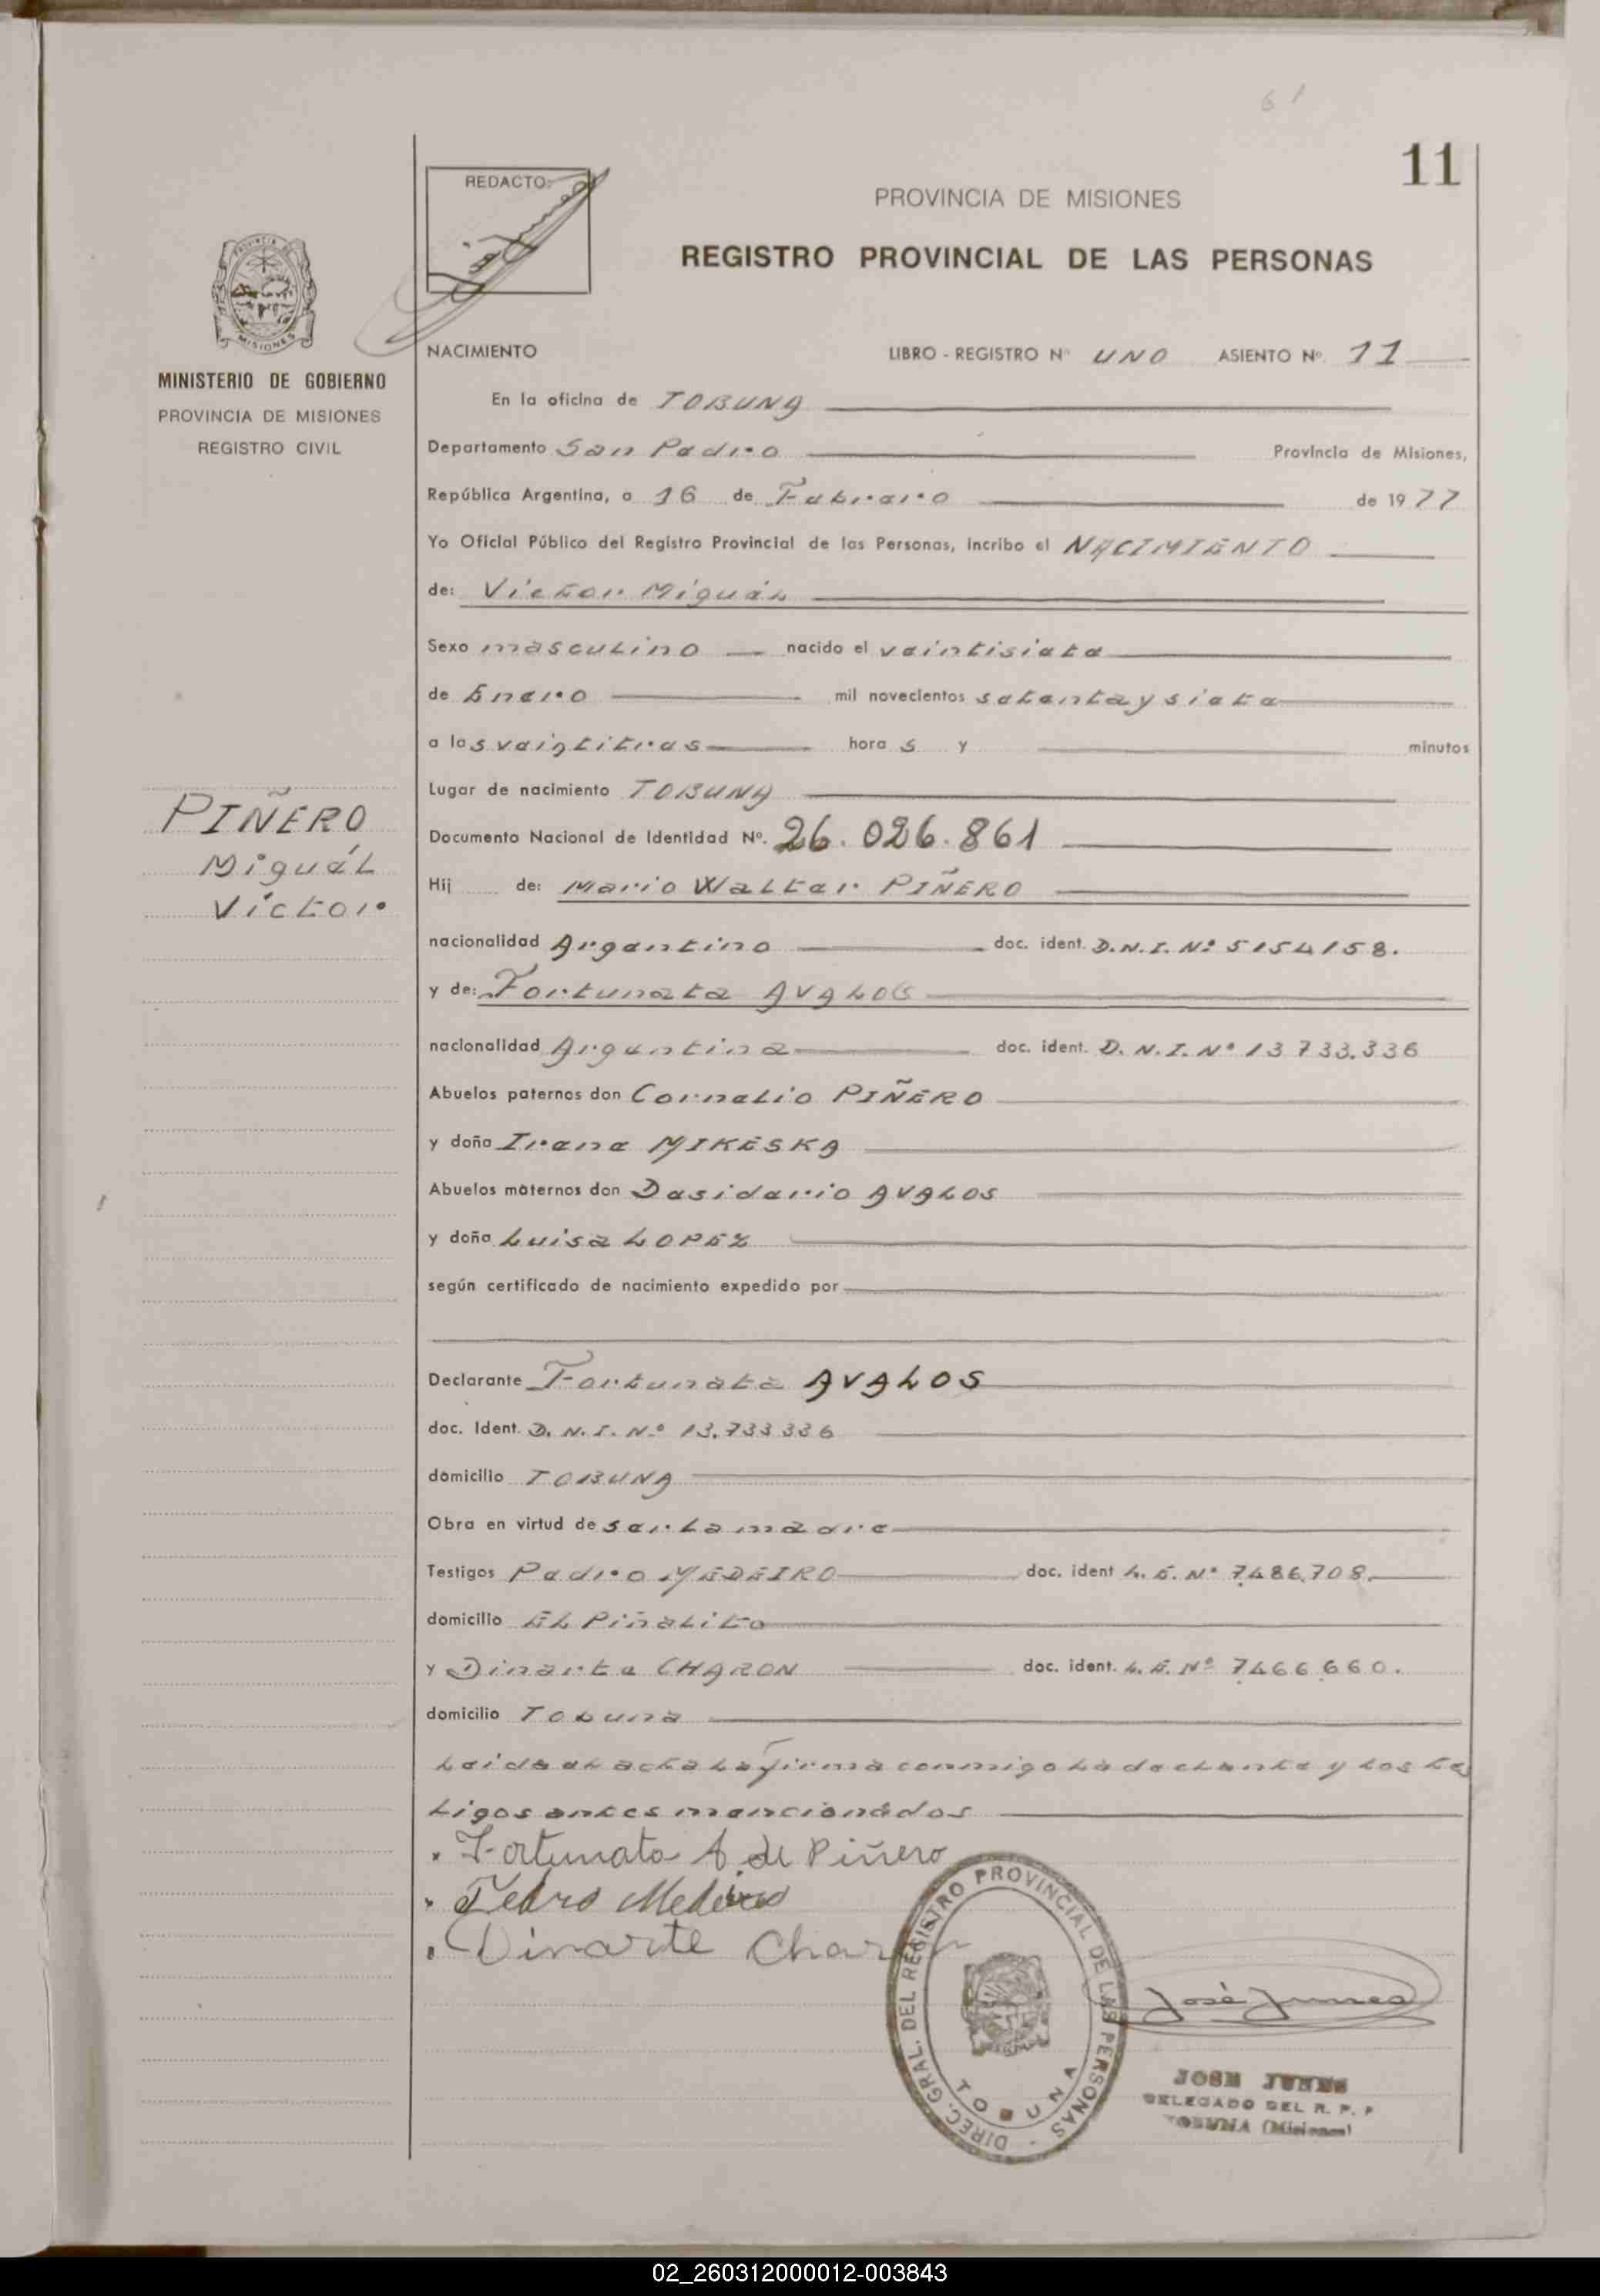 61
11
REDACTO:
PROVINCIA DE MISIONES
REGISTRO PROVINCIAL DE LAS PERSONAS
MISIONES
MINISTERIO DE GOBIERNO
PROVINCIA DE MISIONES
REGISTRO CIVIL
NACIMIENTO LIBRO - REGISTRO Nº UNO ASIENTO Nº. 11
En la oficina de TOBUNA
Departamento San Pedro Provincia de Misiones,
República Argentina, a 16 de Febrero de 1977
Yo Oficial Público del Registro Provincial de las Personas, incribo el NACIMIENTO
de: Victor Miguél
Sexo masculino nacido el veintisiete
de Enero mil novecientos setenta y siete
a las veintitres hora s y minutos
Lugar de nacimiento TOBUNA
PIÑERO
Miguél
Victor
Documento Nacional de Identidad Nº. 26.026.861
Hij de: Mario Walter PIÑERO
nacionalidad Argentino doc. ident. D.N.I. Nº 5154158.
y de: Fortunata AVALOS
nacionalidad Argentina doc. ident. D.N.I. Nº 13733.336
Abuelos paternos don Cornelio PIÑERO
y doña Irene MIKESKA
Abuelos maternos don Desiderio AVALOS
y doña Luisa LOPEZ
según certificado de nacimiento expedido por
Declarante Fortunata AVALOS
doc. Ident. D.N.I. Nº 13.733336
domicilio TOBUNA
Obra en virtud de ser La madre
Testigos Pedro MEDEIRO doc. ident L.E. Nº 7.486.708.
domicilio EL Piñalito
y Dinarte CHARON doc. ident. L.E. Nº 7.466.660.
domicilio Tobuna
Leida el acta La firma conmigo La declante y Los tes
tigos antes mencionados
Fortunata A. de Piñero
Pedro Medeiro
Dinarte Charon
DIREC. GRAL. DEL REGISTRO PROVINCIAL DE LAS PERSONAS
TOBUNA
José Junes
JOSE JUNES
DELEGADO DEL R. P. P
TOBUNA (Misiones)
02_260312000012-003843